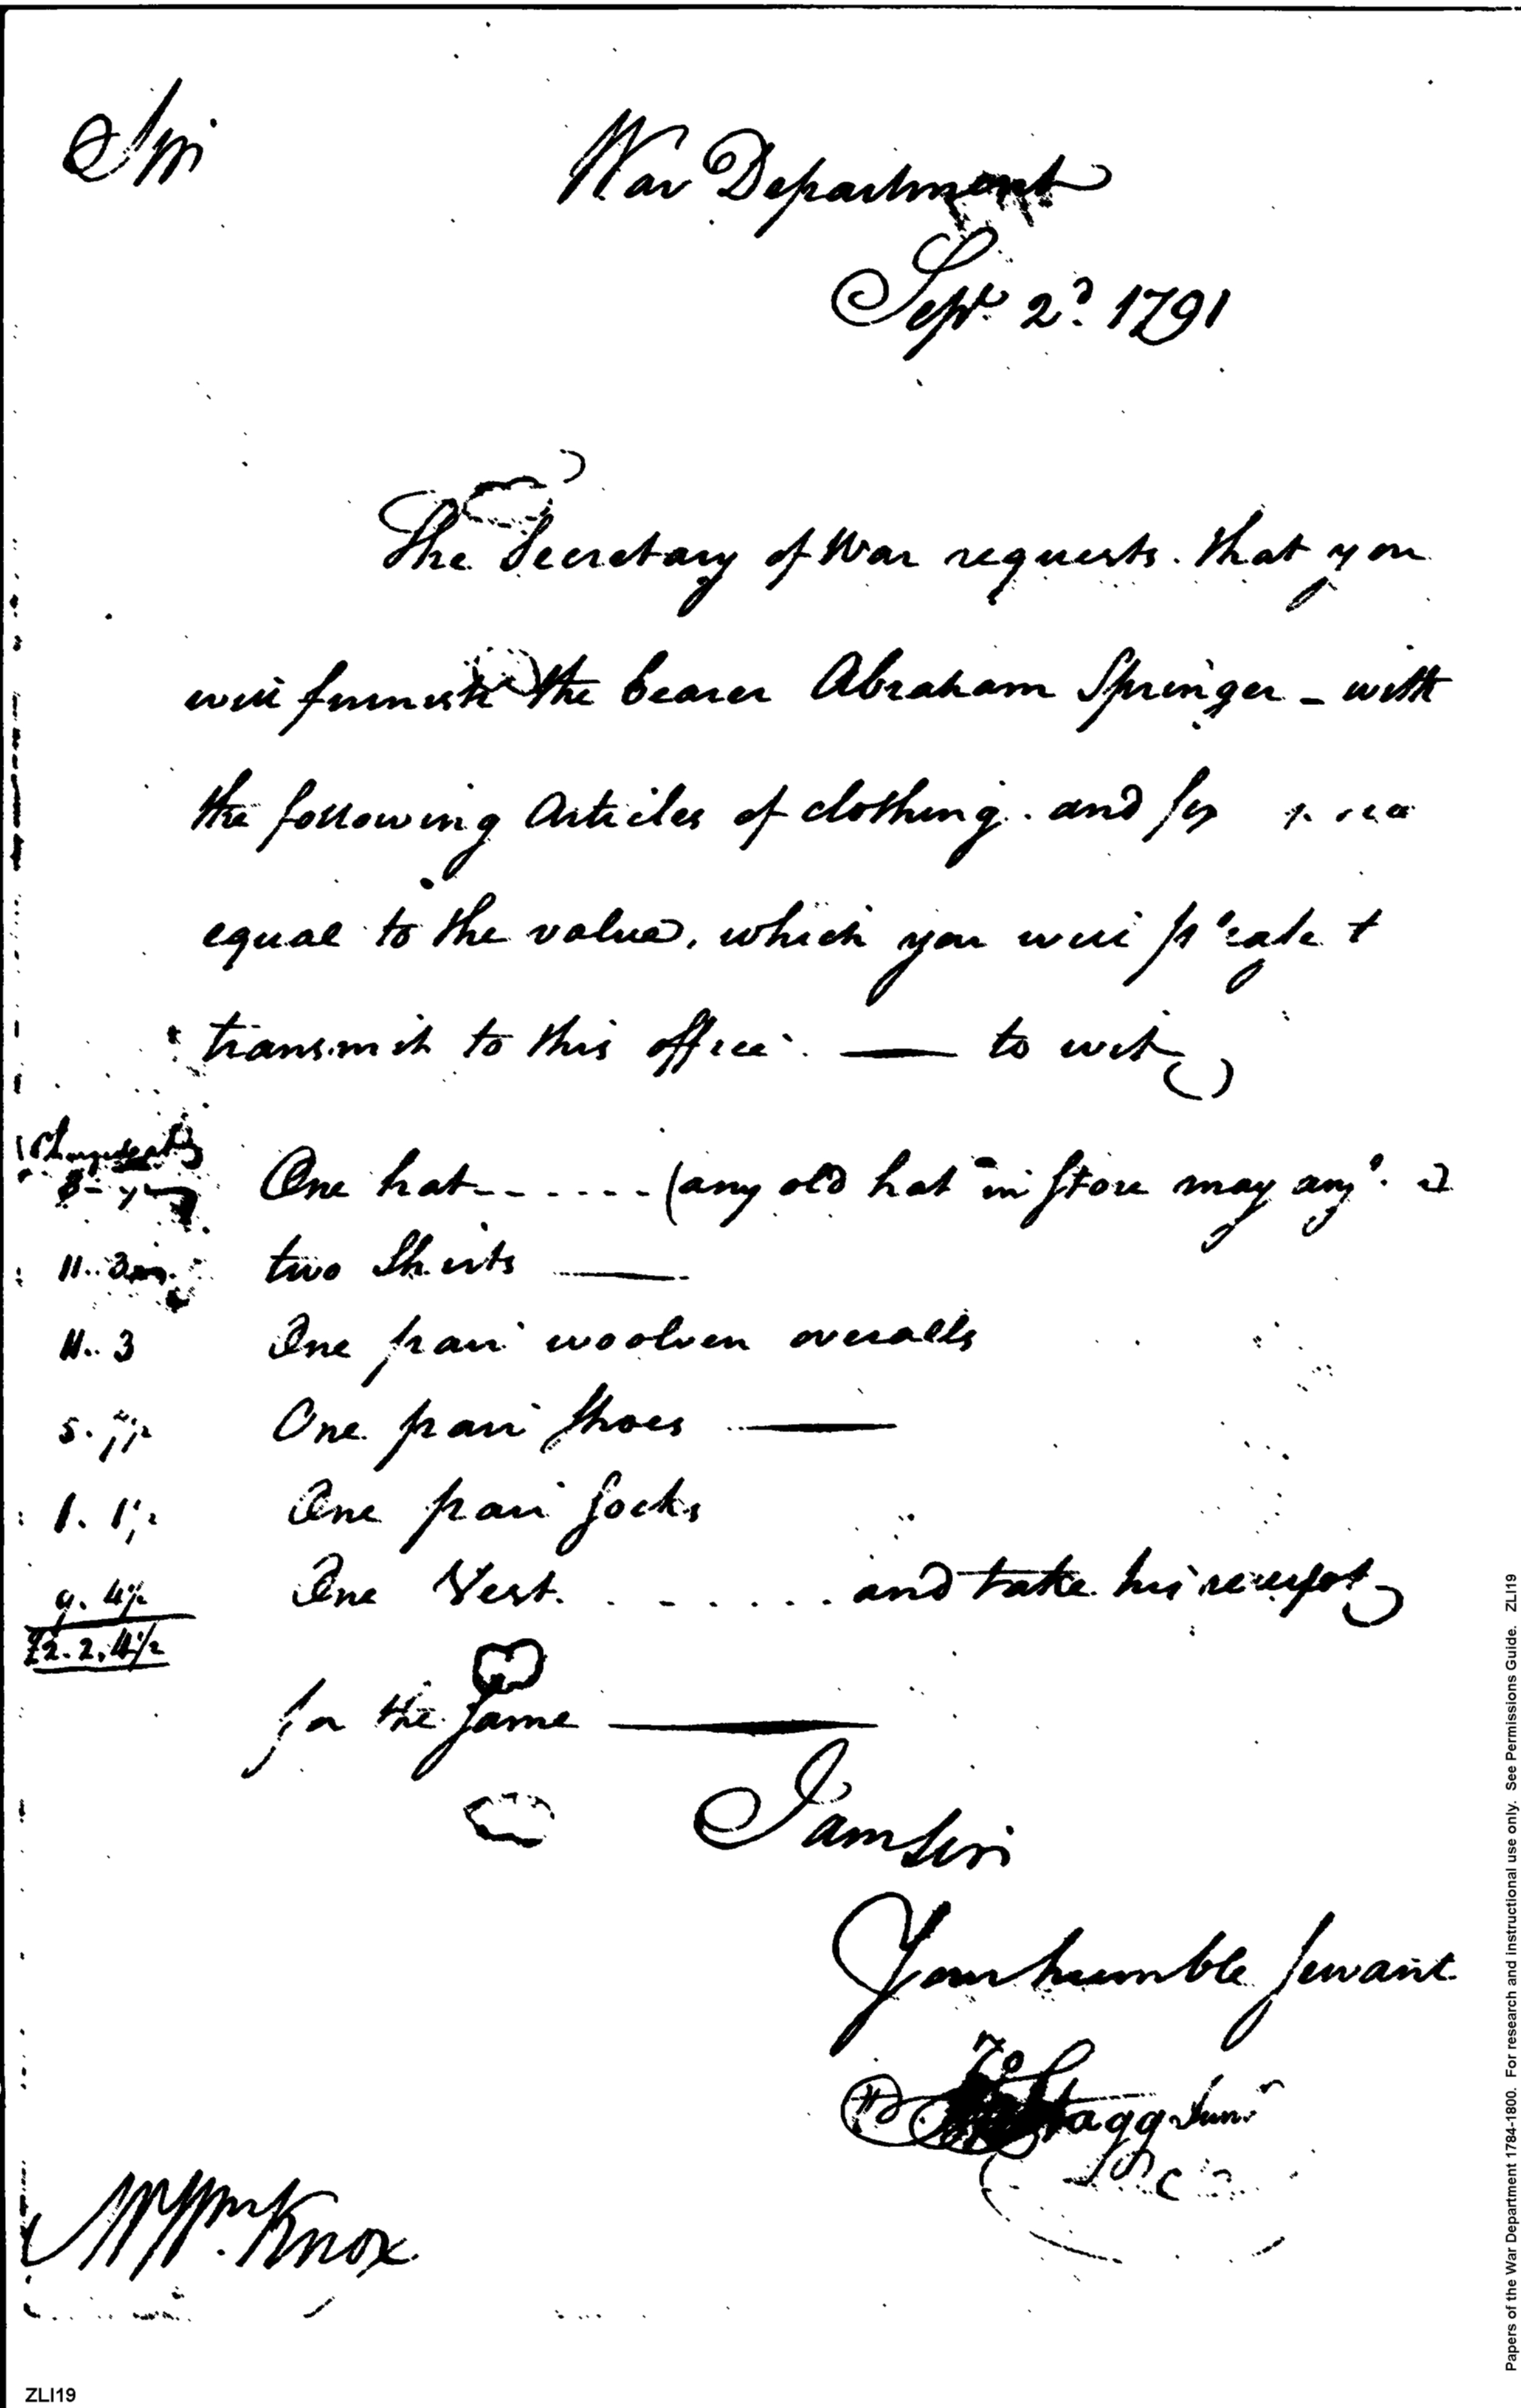 Sir
War Department
Sept. 2d 1791
The Secretary of War requests. that you
will furnish the bearer Abraham Springer - with
the following Articles of clothing. and
equal to the value, which you will
transmit to this office. — to wit
One hat - - - - - - (any old hat in Store may
11.. 3 two Shirts —
11.. 3 One pair woolen overalls
5. One pair Shoes —
1. 1½ One pair Socks
9. 4½ One Vest. . . . . . . . and take his receipt
£2. 2. 4½
for the Same —
I am Sir
Your humble Servant
Jo Stagg Junr
Mr Wm. Knox
ZLI19
Papers of the War Department 1784-1800. For research and instructional use only. See Permissions Guide. ZLI19